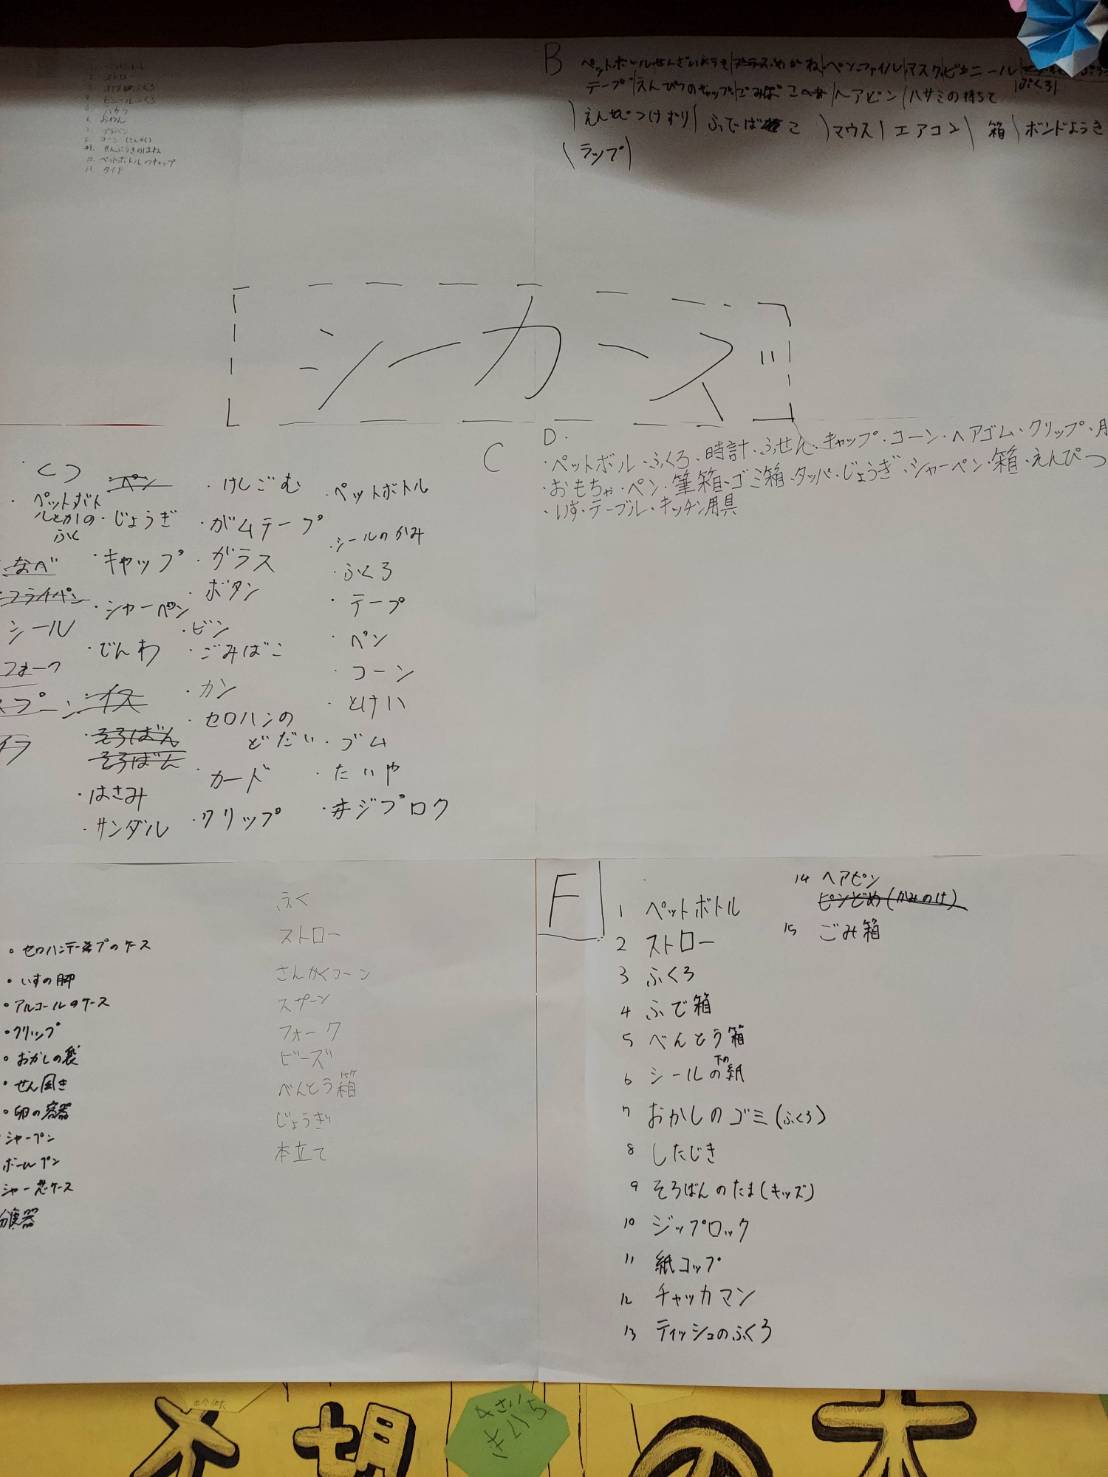 ストロー
ビニールぶくろ
せんぷうきのはね
ペットボトルのキャップ
B
テープ えんぴつのキャップ ごみばこ ヘアピン ハサミの持ちて
えんぴつけずり ふでばこ マウス エアコン 箱 ボンドようき
ラップ
シーカーズ
C
くつ
ペン
けしごむ
ペットボトル
じょうぎ
ガムテープ
シールのかみ
なべ
キャップ
ガラス
ふくろ
フライパン
シャーペン
ボタン
テープ
シール
でんわ
ビン
ペン
フォーク
イス
ごみばこ
コーン
スプーン
そろばん
そろばん
カン
とけい
はさみ
セロハンの
どだい
ゴム
サンダル
カード
たいや
クリップ
ジプロク
D.
・ペットボル・ふくろ・時計・ふせん・キャップ・コーン・ヘアゴム・クリップ・
・おもちゃ・ペン・筆箱・ゴミ箱・タッパ・じょうぎ・シャーペン・箱・えんぴつ
・いす・テーブル・キッチン用具
・いすの脚
・アルコールのケース
・クリップ
・おかしの袋
・せん抜き
・卵の容器
シャープペン
ボールペン
シャー芯ケース
ふく
ストロー
さんかくコーン
スプーン
フォーク
ビーズ
べんとう箱
じょうぎ
本立て
F
1 ペットボトル
2 ストロー
3 ふくろ
4 ふで箱
5 べんとう箱
6 シールの下の紙
7 おかしのゴミ(ふくろ)
8 したじき
9 そろばんのたま(キッズ)
10 ジップロック
11 紙コップ
12 チャッカマン
13 ティッシュのふくろ
14 ヘアピン
ピンどめ(かみのけ)
15 ごみ箱